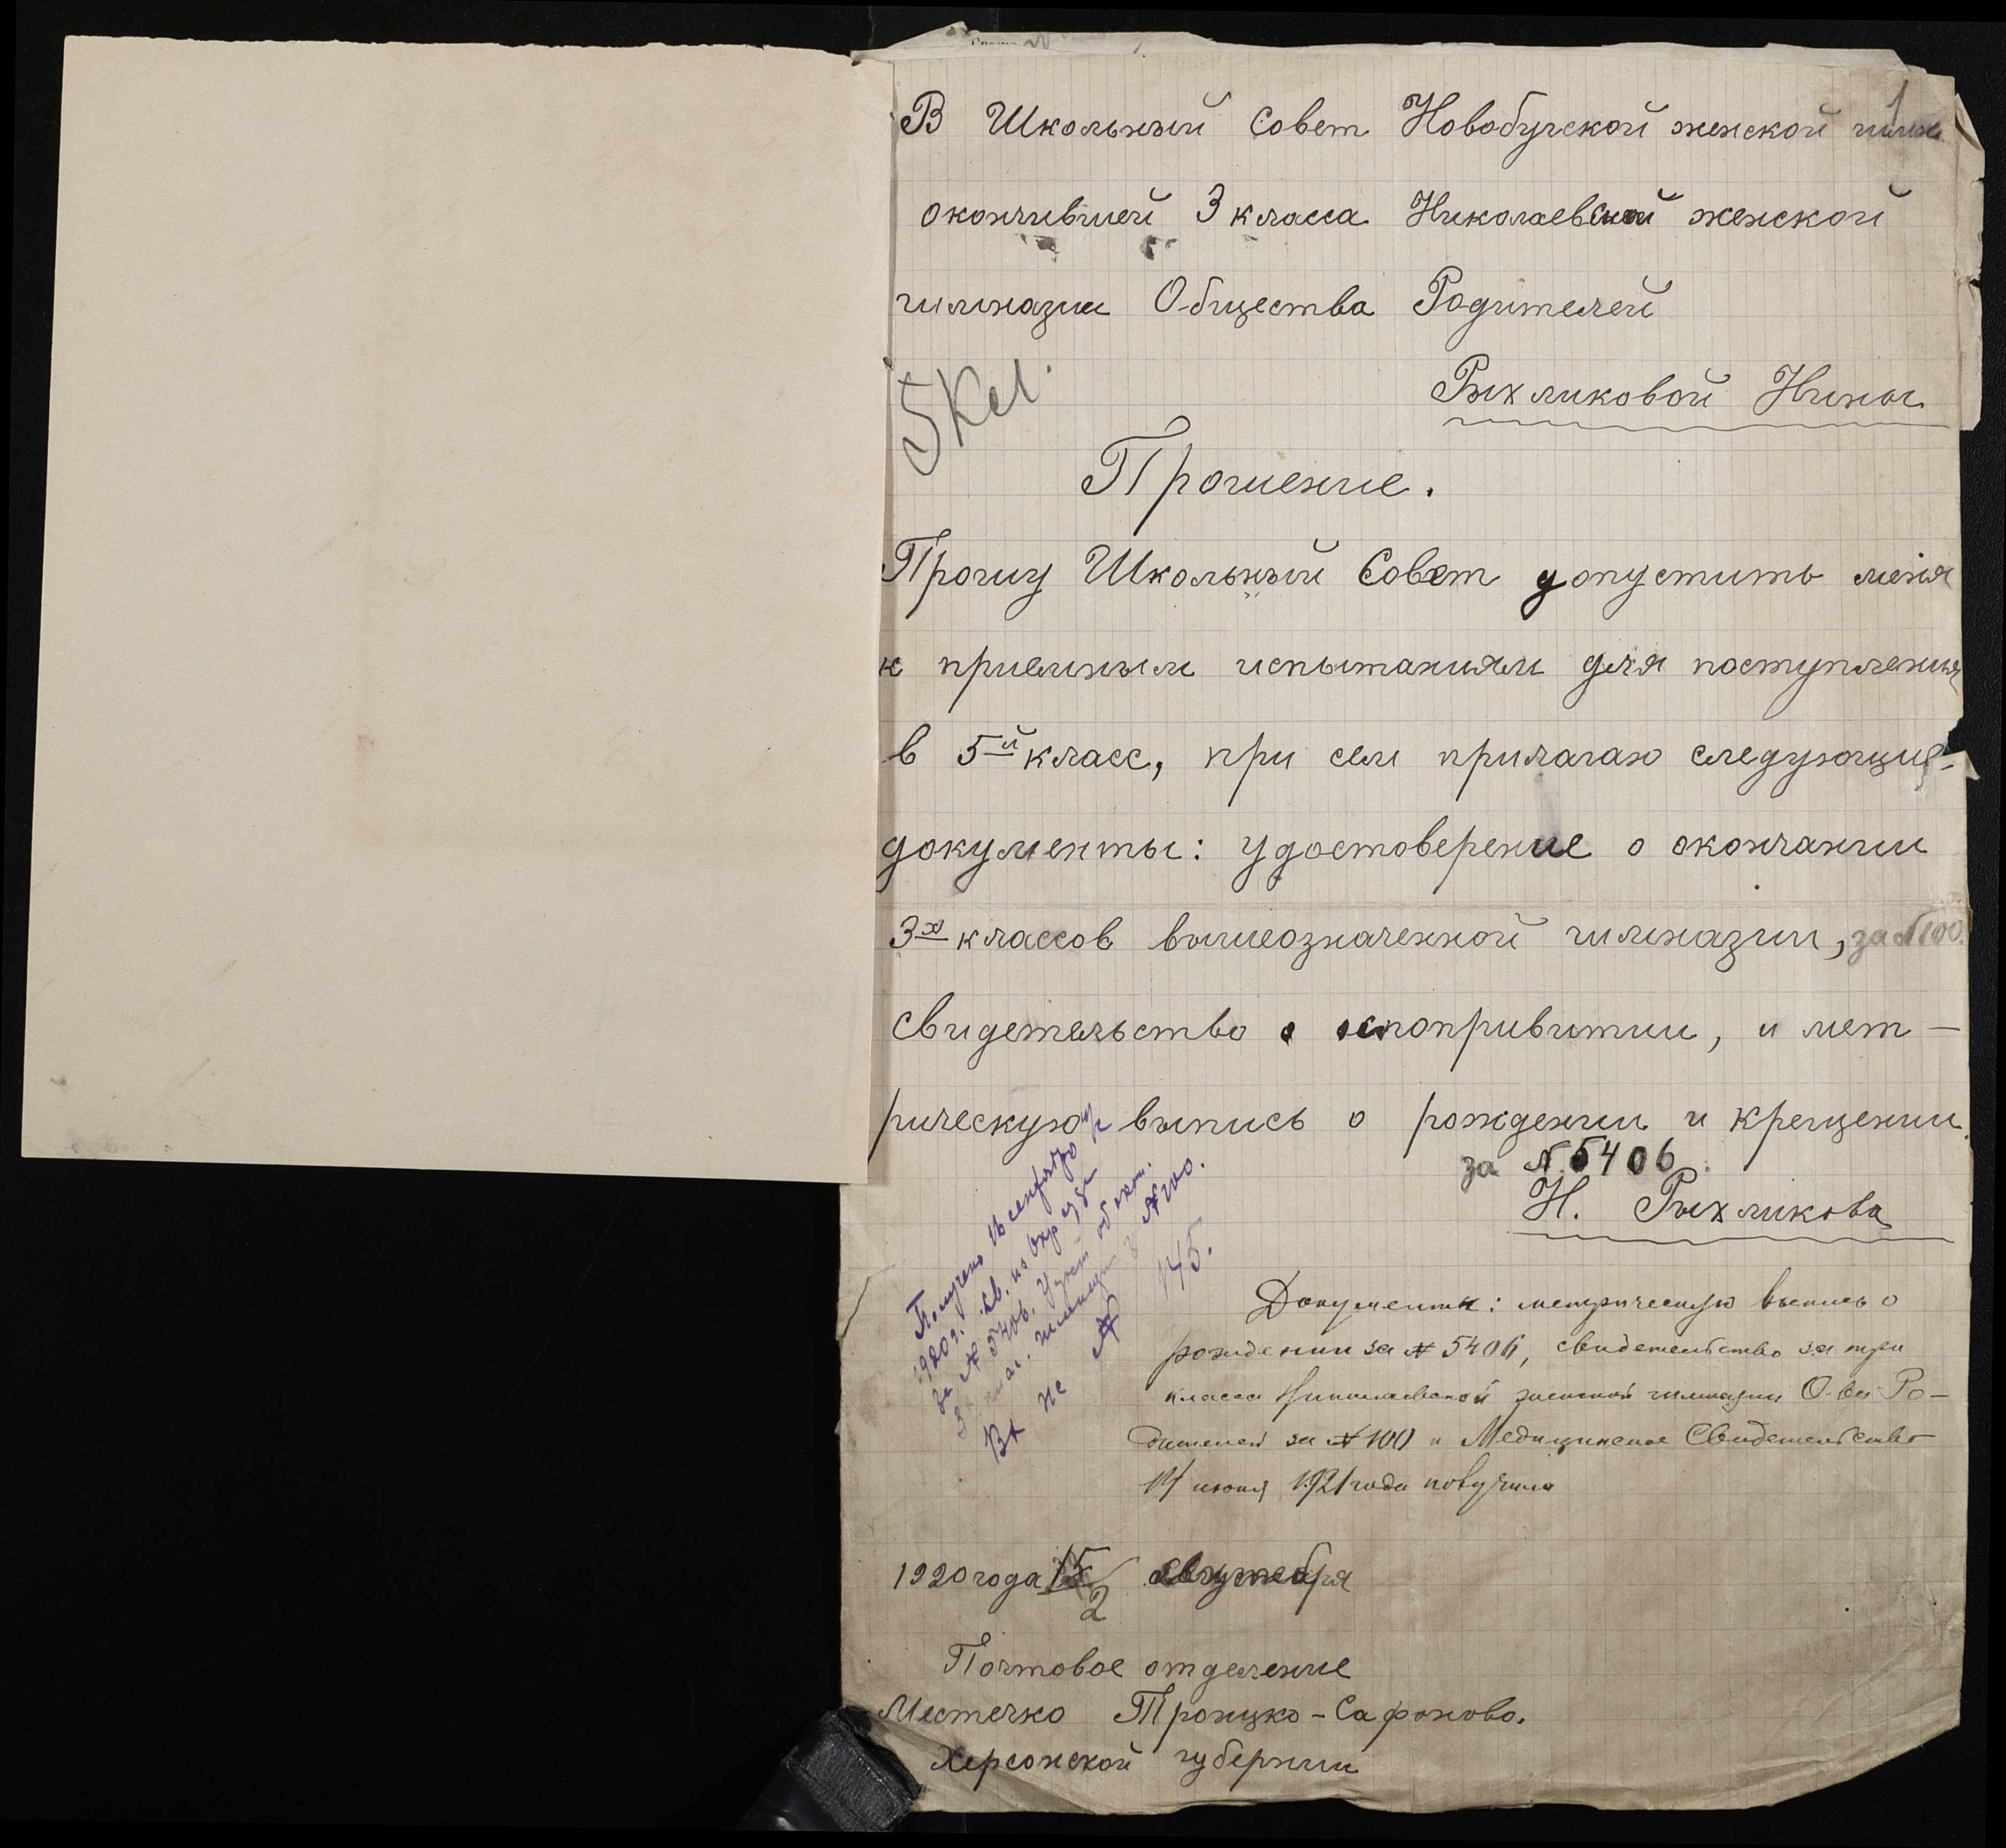 1
В Школьный Совет Новобугской женской гимн
окончившей 3 класса Николаевской женской
гимназии Общества Родителей
Рыхликовой Нины
5 кл.
Прошение.
Прошу Школьный Совет допустить меня
к приемным испытаниям для поступления
в 5й класс, при сем прилагаю следующие
документы: удостоверение о окончании
3х классов вышеозначенной гимназии, за №100.
свидетельство о оспопривитии, и мет-
рическую выпись о рождении и крещении.
за №.5406.
Н. Рыхликова
Получено 16 сентября
1920 г.
за № 5406.
№100.
Вх № 145.
Документы: метрическую выпись о
рождении за № 5406, свидетельство за три
класса Николаевской женской гимназии О-ва Ро-
дителей за №100 и Медицинское Свидетельство
14 июня 1921 года получила
1920 года 15/2
Почтовое отделение
Местечко Троицко-Сафоново.
Херсонской губернии